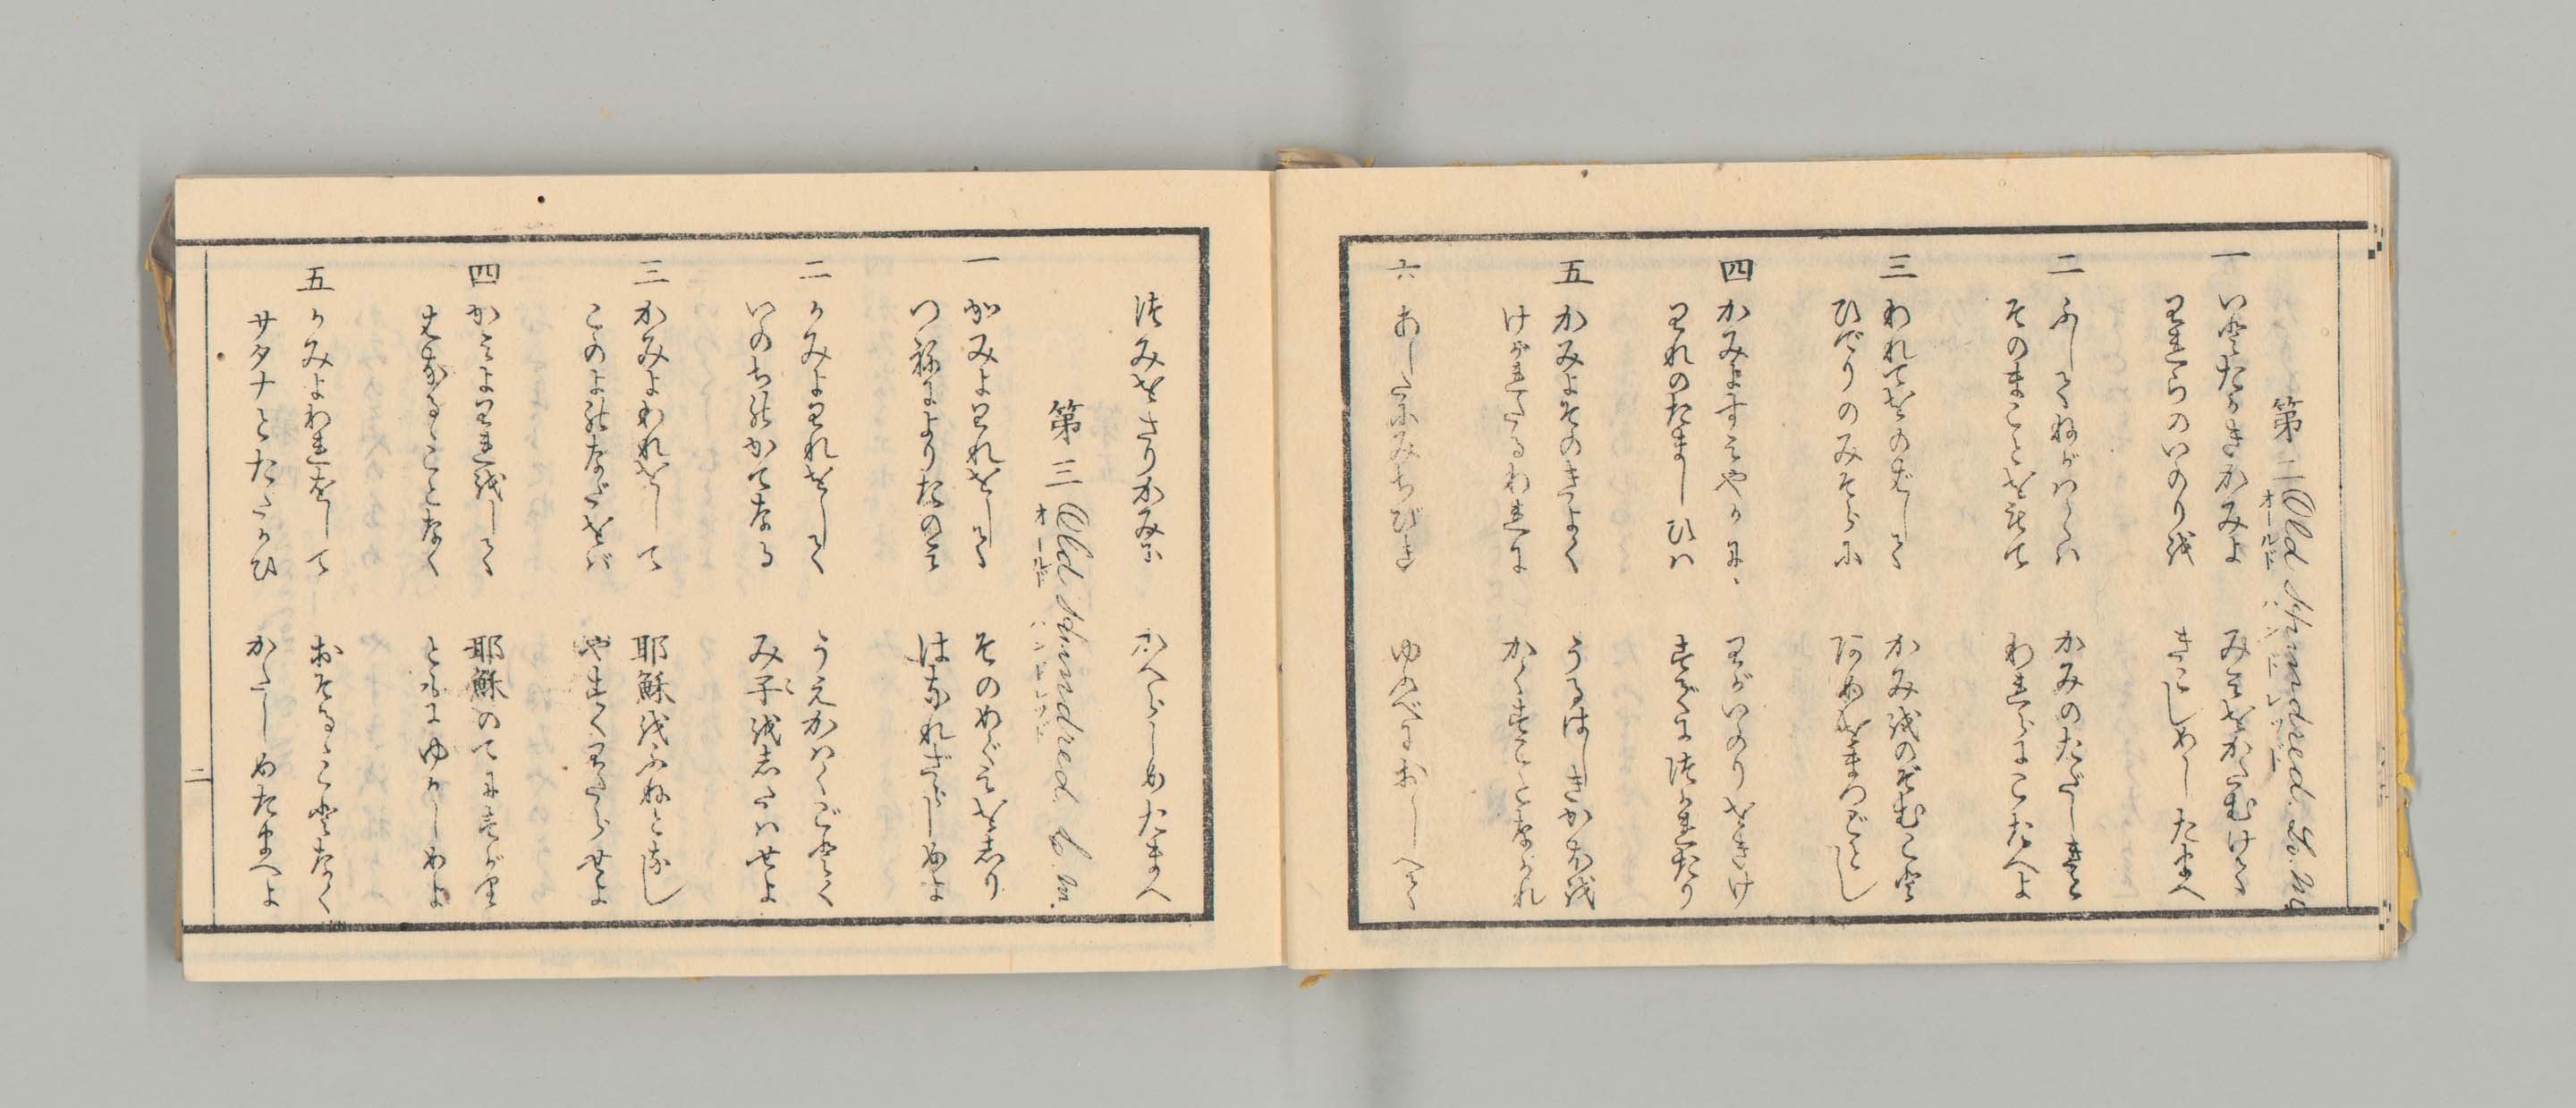 第二 Old Hundred. L.M.
オールド ハンドレッド
一 いとたかきかみよ みみをかたむけて
われらのいのりを きこしめしたまへ
二 ふしてねがはくは かみのたゞしきと
そのまことをもて われらにこたへよ
三 われてをのばして かみをのぞむこと
ひでりのみそらに あめをまつごとし
四 かみよすみやかに わがいのりをきけ
われのたましひは すでにつかれたり
五 かみよそのきよく うるはしきかほを
けがれたるわれに かくすことなかれ
六 あしたにみちびき ゆふべにおしへて
つみをさりかみに かへらしめたまへ
第三 Old Hundred. L.M.
オールド ハンドレッド
一 かみよわれをして そのめぐみをしり
つねによりたのみ はなれざらしめよ
二 かみよわれをして うえかはくごとく
いのちのかてなる み子をしたはせよ
三 かみよわれをして 耶穌をふねとなし
このよのなだをば やすくわたらせよ
四 かみよわれをして 耶穌のてにすがり
はなるゝことなく ともにゆかしめよ
五 かみよわれをして おそるゝことなく
サタナとたたかひ かたしめたまへよ
二